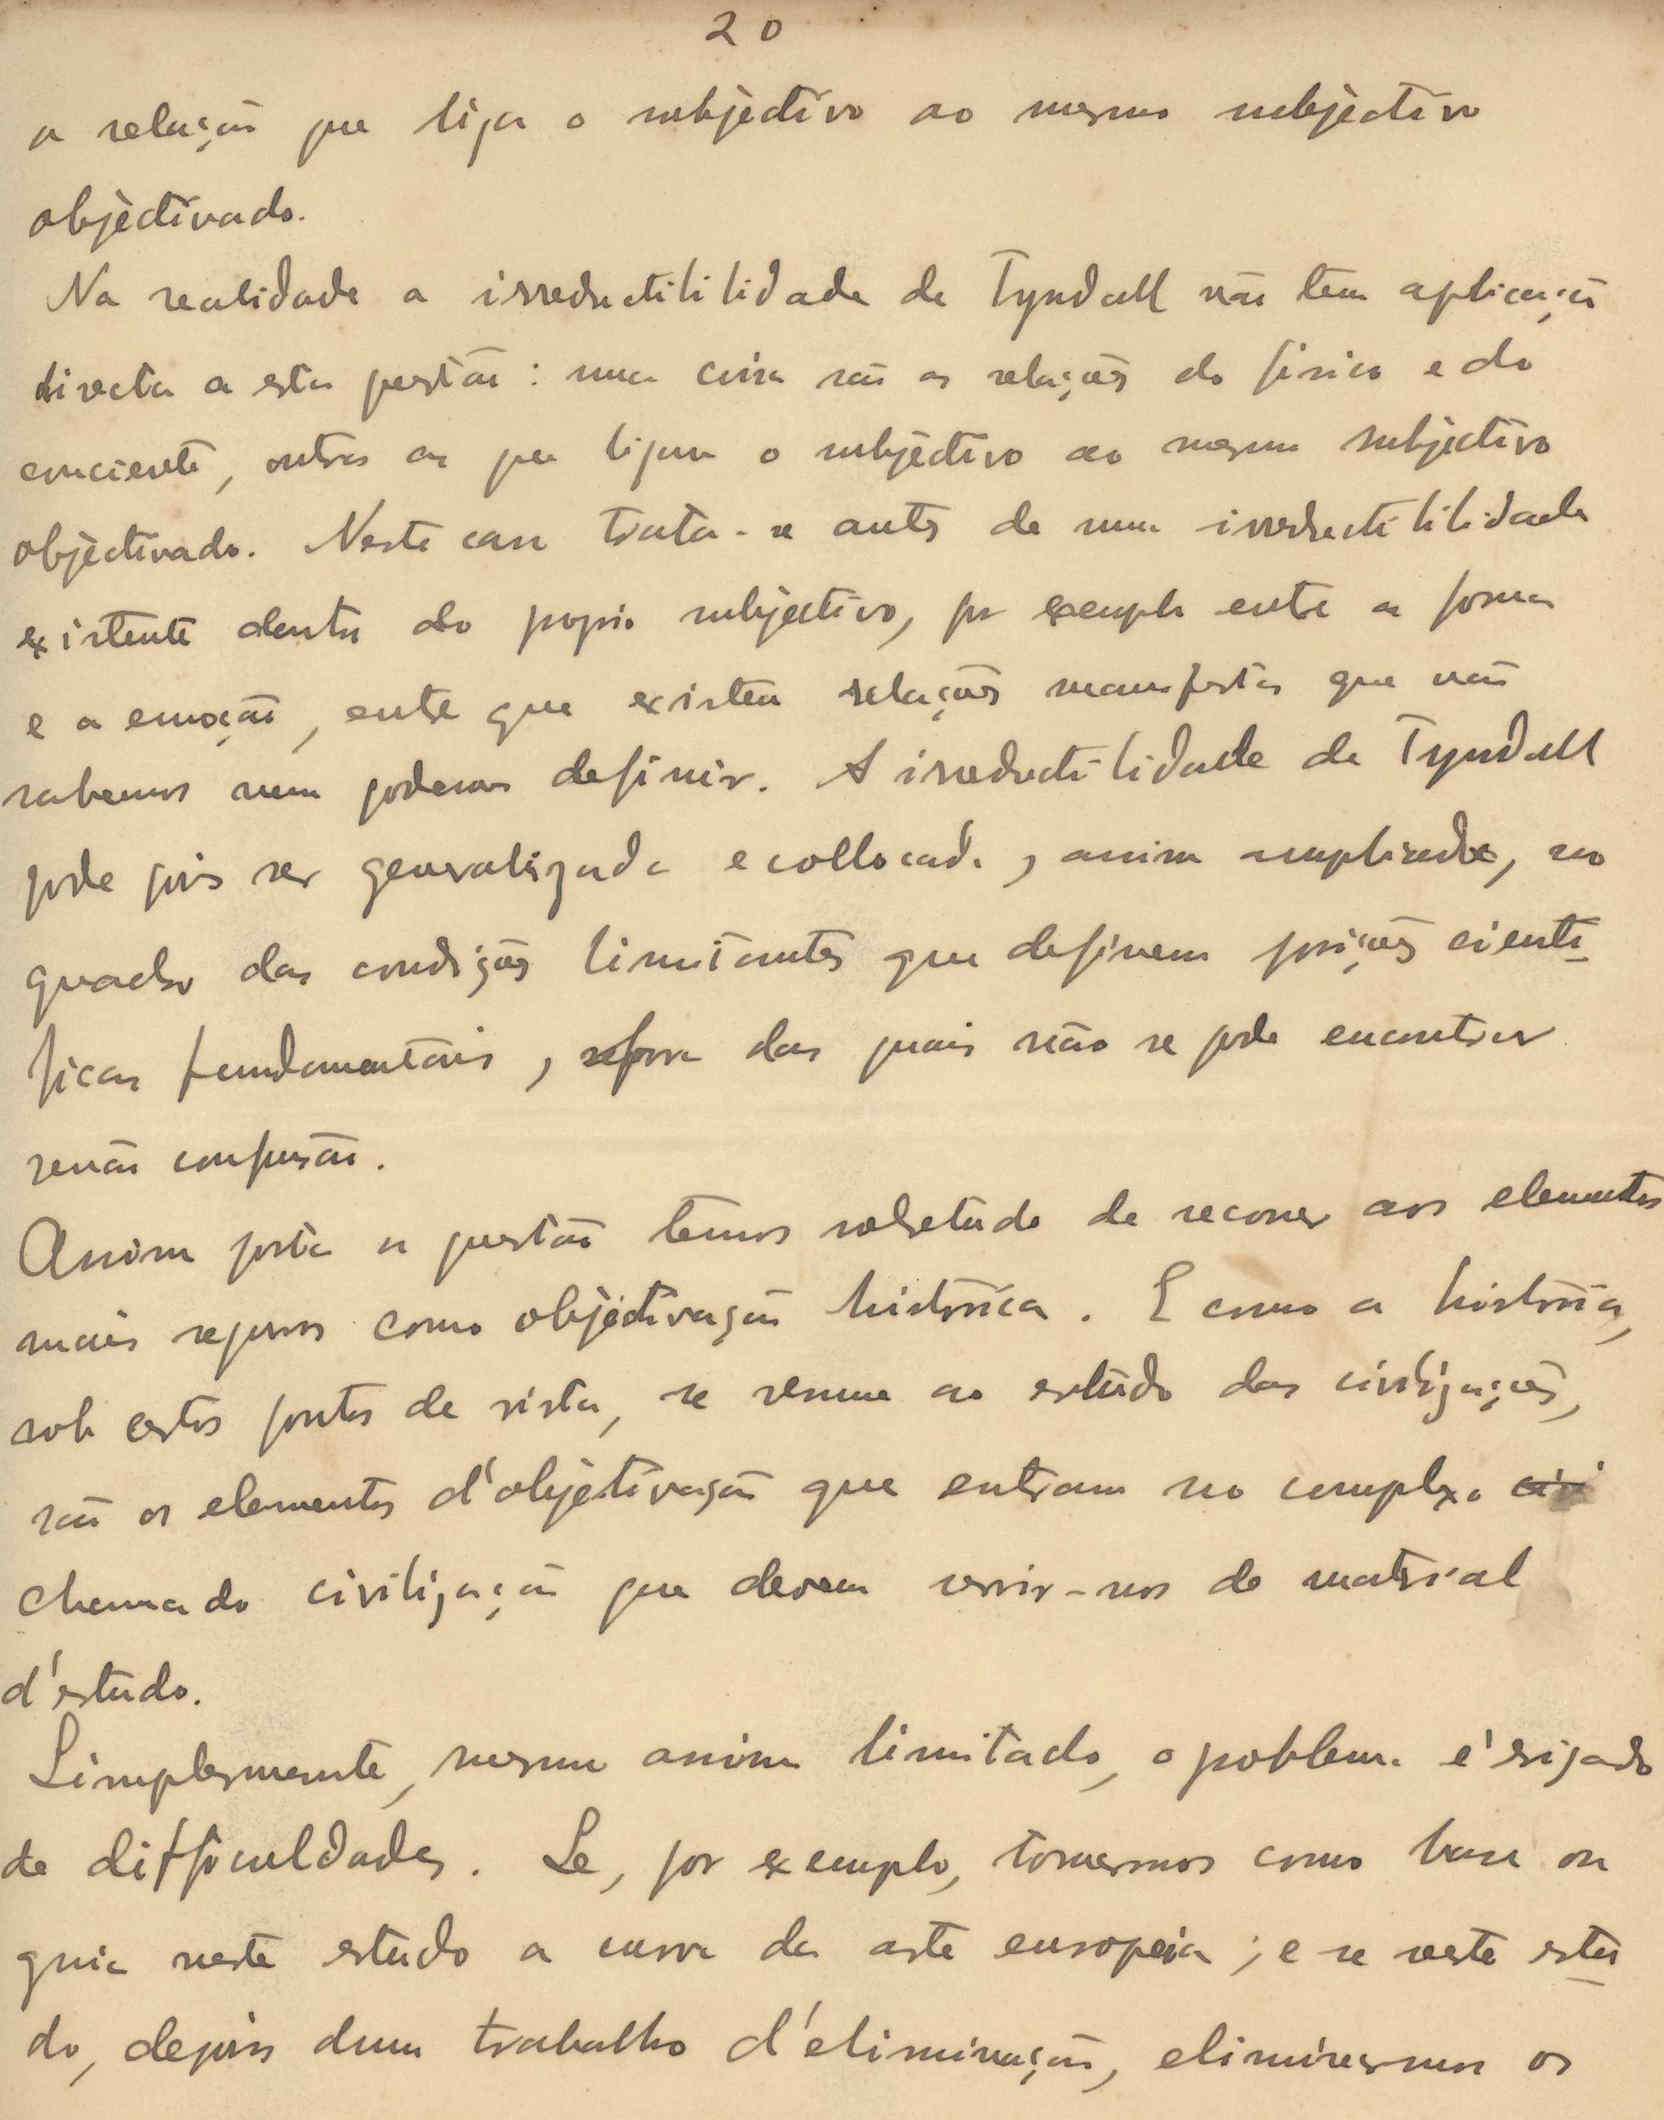 20
a relação que liga o subjectivo ao mesmo subjectivo
objectivado.
Na realidade a irreductibilidade de Tyndall não tem aplicação
directa a esta questão : uma coisa são as relações do fisico e do
conciente, outras as que ligam o subjectivo ao mesmo subjectivo
objectivado. Neste caso trata-se antes de uma irreductibilidade
existente dentro do proprio subjectivo, por exemplo entre a forma
e a emoção, entre que existem relações manifestas que não
sabemos nem podemos definir. A irreductibilidade de Tyndall
pode pois ser generalizada e collocada, assim ampliada, no
quadro das condições limitantes que definem posições cientí-
ficas fundamentais, fora das quais não se pode encontrar
senão confusão.
Assim posta a questão temos sobretudo de recorrer aos elementos
mais seguros como objectivação histórica. E como a história,
sob certos pontos de vista, se resume ao estudo das civilizações,
são os elementos d'objetivação que entram no complexo civi
chamado civilização que devem servir-nos de material
d'estudo.
Simplesmente, mesmo assim limitado, o problema é eriçado
de difficuldades. Se, por exemplo, tomarmos como base ou
guia neste estudo a curva da arte europeia ; e se neste estu-
do, depois dum trabalho d'eliminação, eliminarmos os